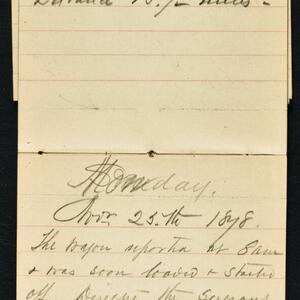 Distance 15 1/2 miles -
Monday.
Novr 25.th 1878.
The wagon reported at 8am
& was soon loaded & started
off Directed the Sergeant